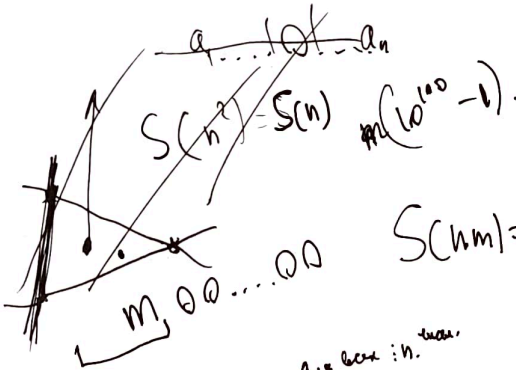 a₁ .... |0| .... aₙ
S(n²) = S(n) m(10¹⁰⁰ - 1).
S(nm) =
m, 00....00